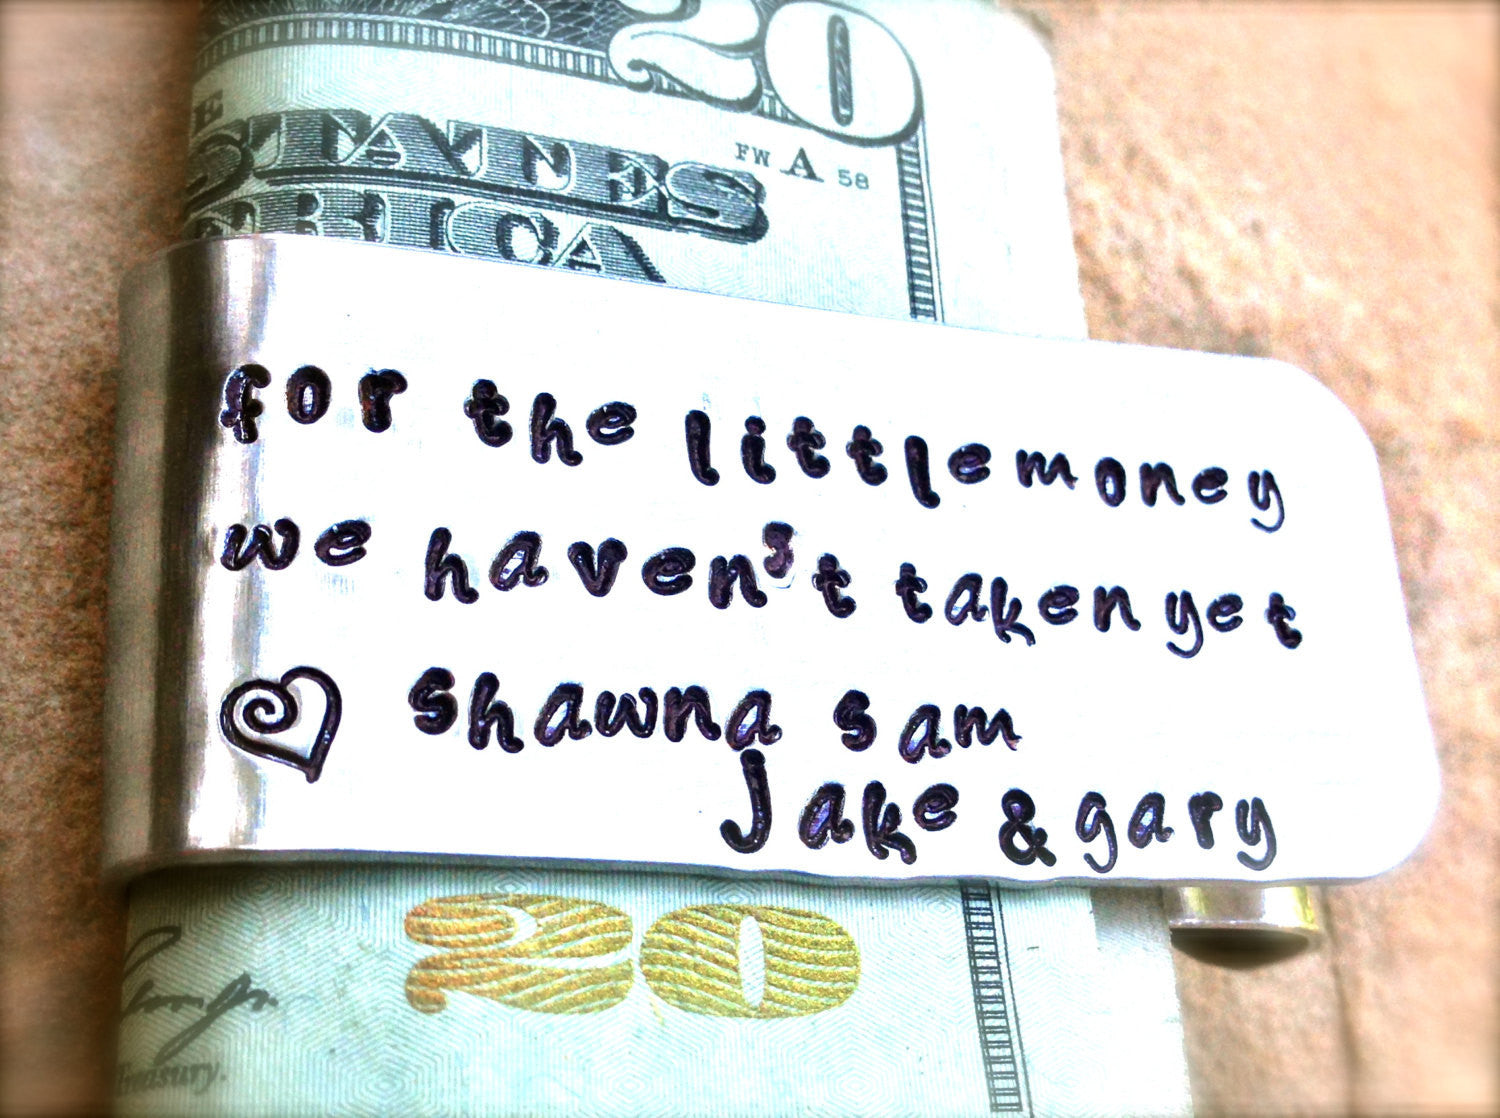 20
STATES
FW A 58
for the little money
we haven't taken yet
shawna sam
jake & gary
20
Treasury.